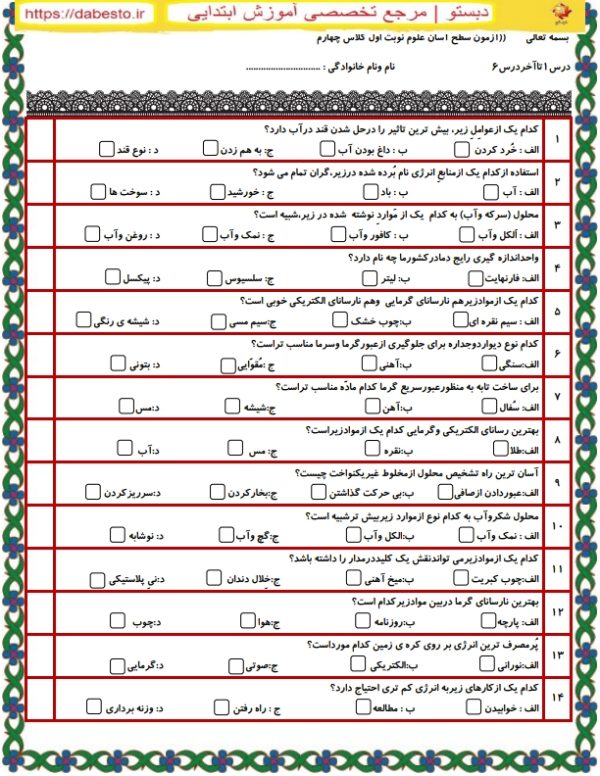 دبستو | مرجع تخصصی آموزش ابتدایی https://dabesto.ir
بسمه تعالی ((ازمون سطح اسان علوم نوبت اول کلاس چهارم
درس۱تاآخردرس۶ نام ونام خانادگی : ................................
۱ کدام یک ازعوامل زیر، بیش ترین تاثیر را درحل شدن قند درآب دارد؟
الف : خُرد کردن ب : داغ بودن آب ج: به هم زدن د : نوع قند
۲ استفاده ازکدام یک ازمنابع انرژی نام بُرده شده درزیر،گران تمام می شود؟
الف : آب ب : باد ج : خورشید د : سوخت ها
۳ محلول (سرکه وآب) به کدام یک از مواردِ نوشته شده در زیر،شبیه است؟
الف : آلکل وآب ب : کافور وآب ج : نمک وآب د : روغن وآب
۴ واحداندازه گیری رایج دمادرکشورما چه نام دارد؟
الف: فارنهایت ب: لیتر ج: سلسیوس د: پیکسل
۵ کدام یک ازموادزیرهم نارسانای گرمایی وهم نارسانای الکتریکی خوبی است؟
الف : سیم نقره ای ب:چوب خشک ج:سیم مسی د: شیشه ی رنگی
۶ کدام نوع دیواردوجداره برای جلوگیری ازعبورگرما وسرما مناسب تراست؟
الف:سنگی ب:آهنی ج :مُقوّایی د: بتونی
۷ برای ساخت تابه به منظورعبورسریع گرما کدام مادّه مناسب تراست؟
الف: سُفال ب:آهن ج:شیشه د:مس
۸ بهترین رسانای الکتریکی وگرمایی کدام یک ازموادزیراست؟
الف:طلا ب:نقره ج: مس د:آب
۹ آسان ترین راه تشخیص محلول ازمخلوط غیریکنواخت چیست؟
الف:عبوردادن ازصافی ب:بی حرکت گذاشتن ج:بخارکردن د:سرریزکردن
۱۰ محلول شکروآب به کدام نوع ازموارد زیربیش ترشبیه است؟
الف : نمک وآب ب:الکل وآب ج:گچ وآب د: نوشابه
۱۱ کدام یک ازموادزیرمی تواندنقش یک کلیددرمدار را داشته باشد؟
الف:چوب کبریت ب:میخ آهنی ج:خلال دندان د:نیِ پلاستیکی
۱۲ بهترین نارسانای گرما دربین موادزیرکدام است؟
الف: پارچه ب:روزنامه ج:هوا د:چوب
۱۳ پُرمصرف ترین انرژی بر روی کره ی زمین کدام مورداست؟
الف:نورانی ب:الکتریکی ج:صوتی د:گرمایی
۱۴ کدام یک ازکارهای زیربه انرژی کم تری احتیاج دارد؟
الف : خوابیدن ب : مطالعه ج : راه رفتن د: وزنه برداری